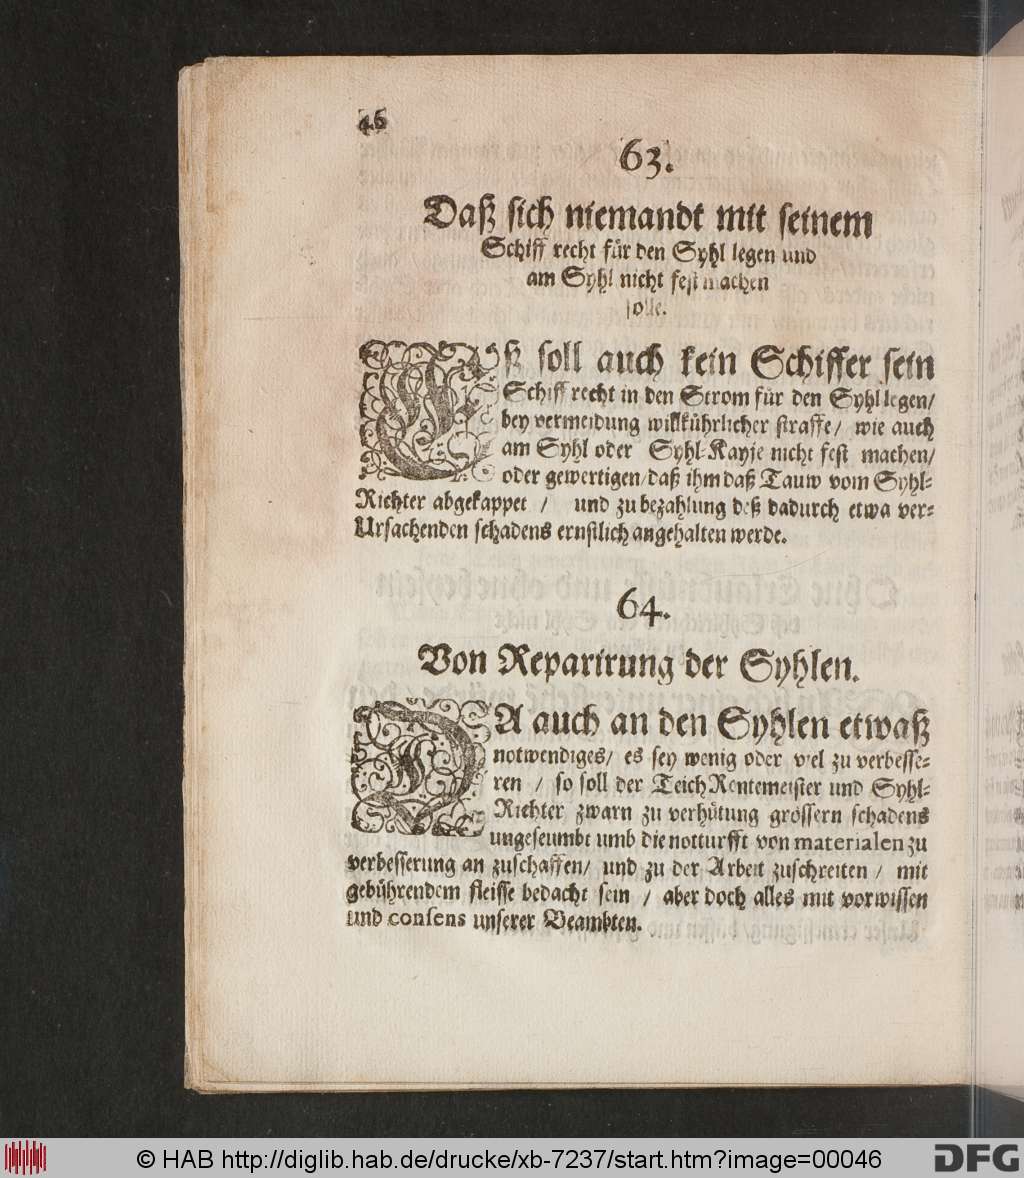 46
63.
Daß sich niemandt mit seinem
Schiff recht für den Syhl legen und
am Syhl nicht fest machen
solle.
Eß soll auch kein Schiffer sein
Schiff recht in den Strom für den Syhl legen/
bey vermeidung willkührlicher straffe/ wie auch
am Syhl oder Syhl-Kayje nicht fest machen/
oder gewertigen/ daß ihm daß Tauw vom Syhl-
Richter abgekappet / und zu bezahlung deß dadurch etwa ver-
Ursachenden schadens ernstlich angehalten werde.
64.
Von Reparirung der Syhlen.
DA auch an den Syhlen etwaß
notwendiges/ es sey wenig oder viel zu verbesse-
ren / so soll der Teich Rentemeister und Syhl-
Richter zwarn zu verhütung grössern schadens
ungeseumbt umb die notturfft von materialen zu
verbesserung an zuschaffen/ und zu der Arbeit zuschreiten / mit
gebührendem fleisse bedacht sein / aber doch alles mit vorwissen
und consens unserer Beambten.
© HAB http://diglib.hab.de/drucke/xb-7237/start.htm?image=00046
DFG